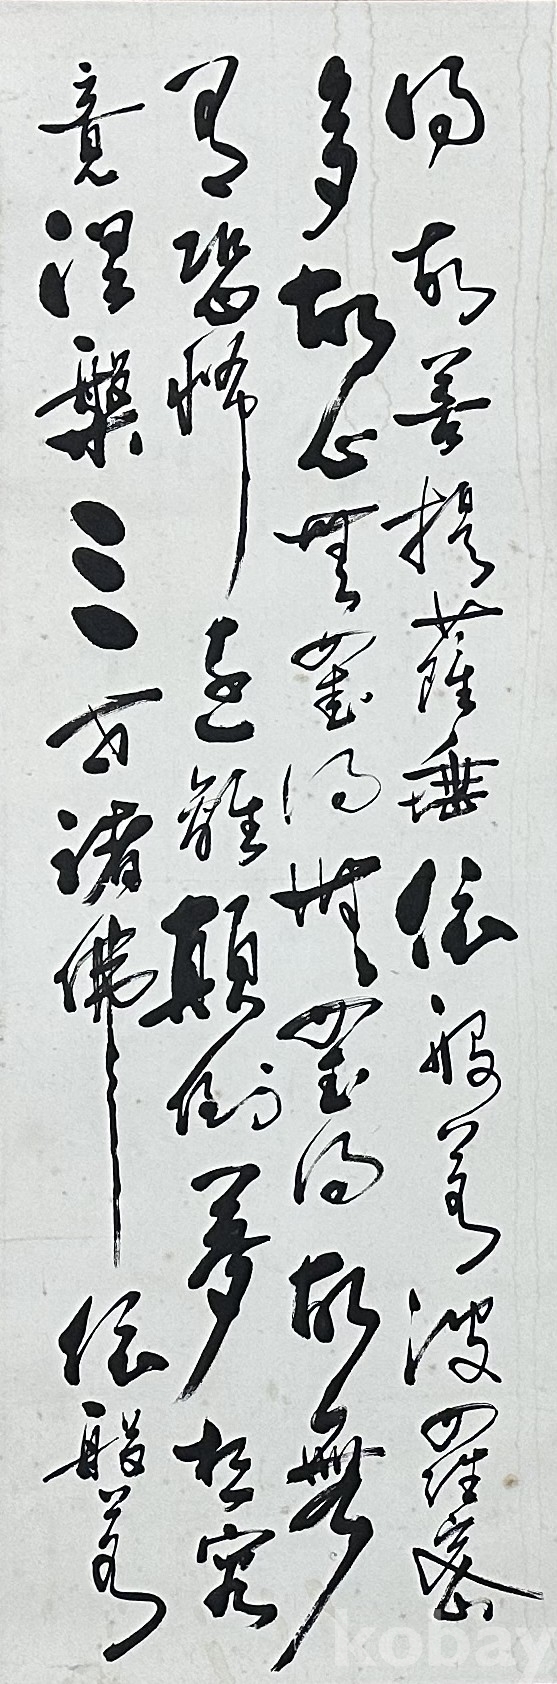 得故菩提薩埵依般若波羅密
多故心無罣碍無罣碍故無
有恐怖遠離顛倒夢想究
竟涅槃三世諸佛依般若
kobay